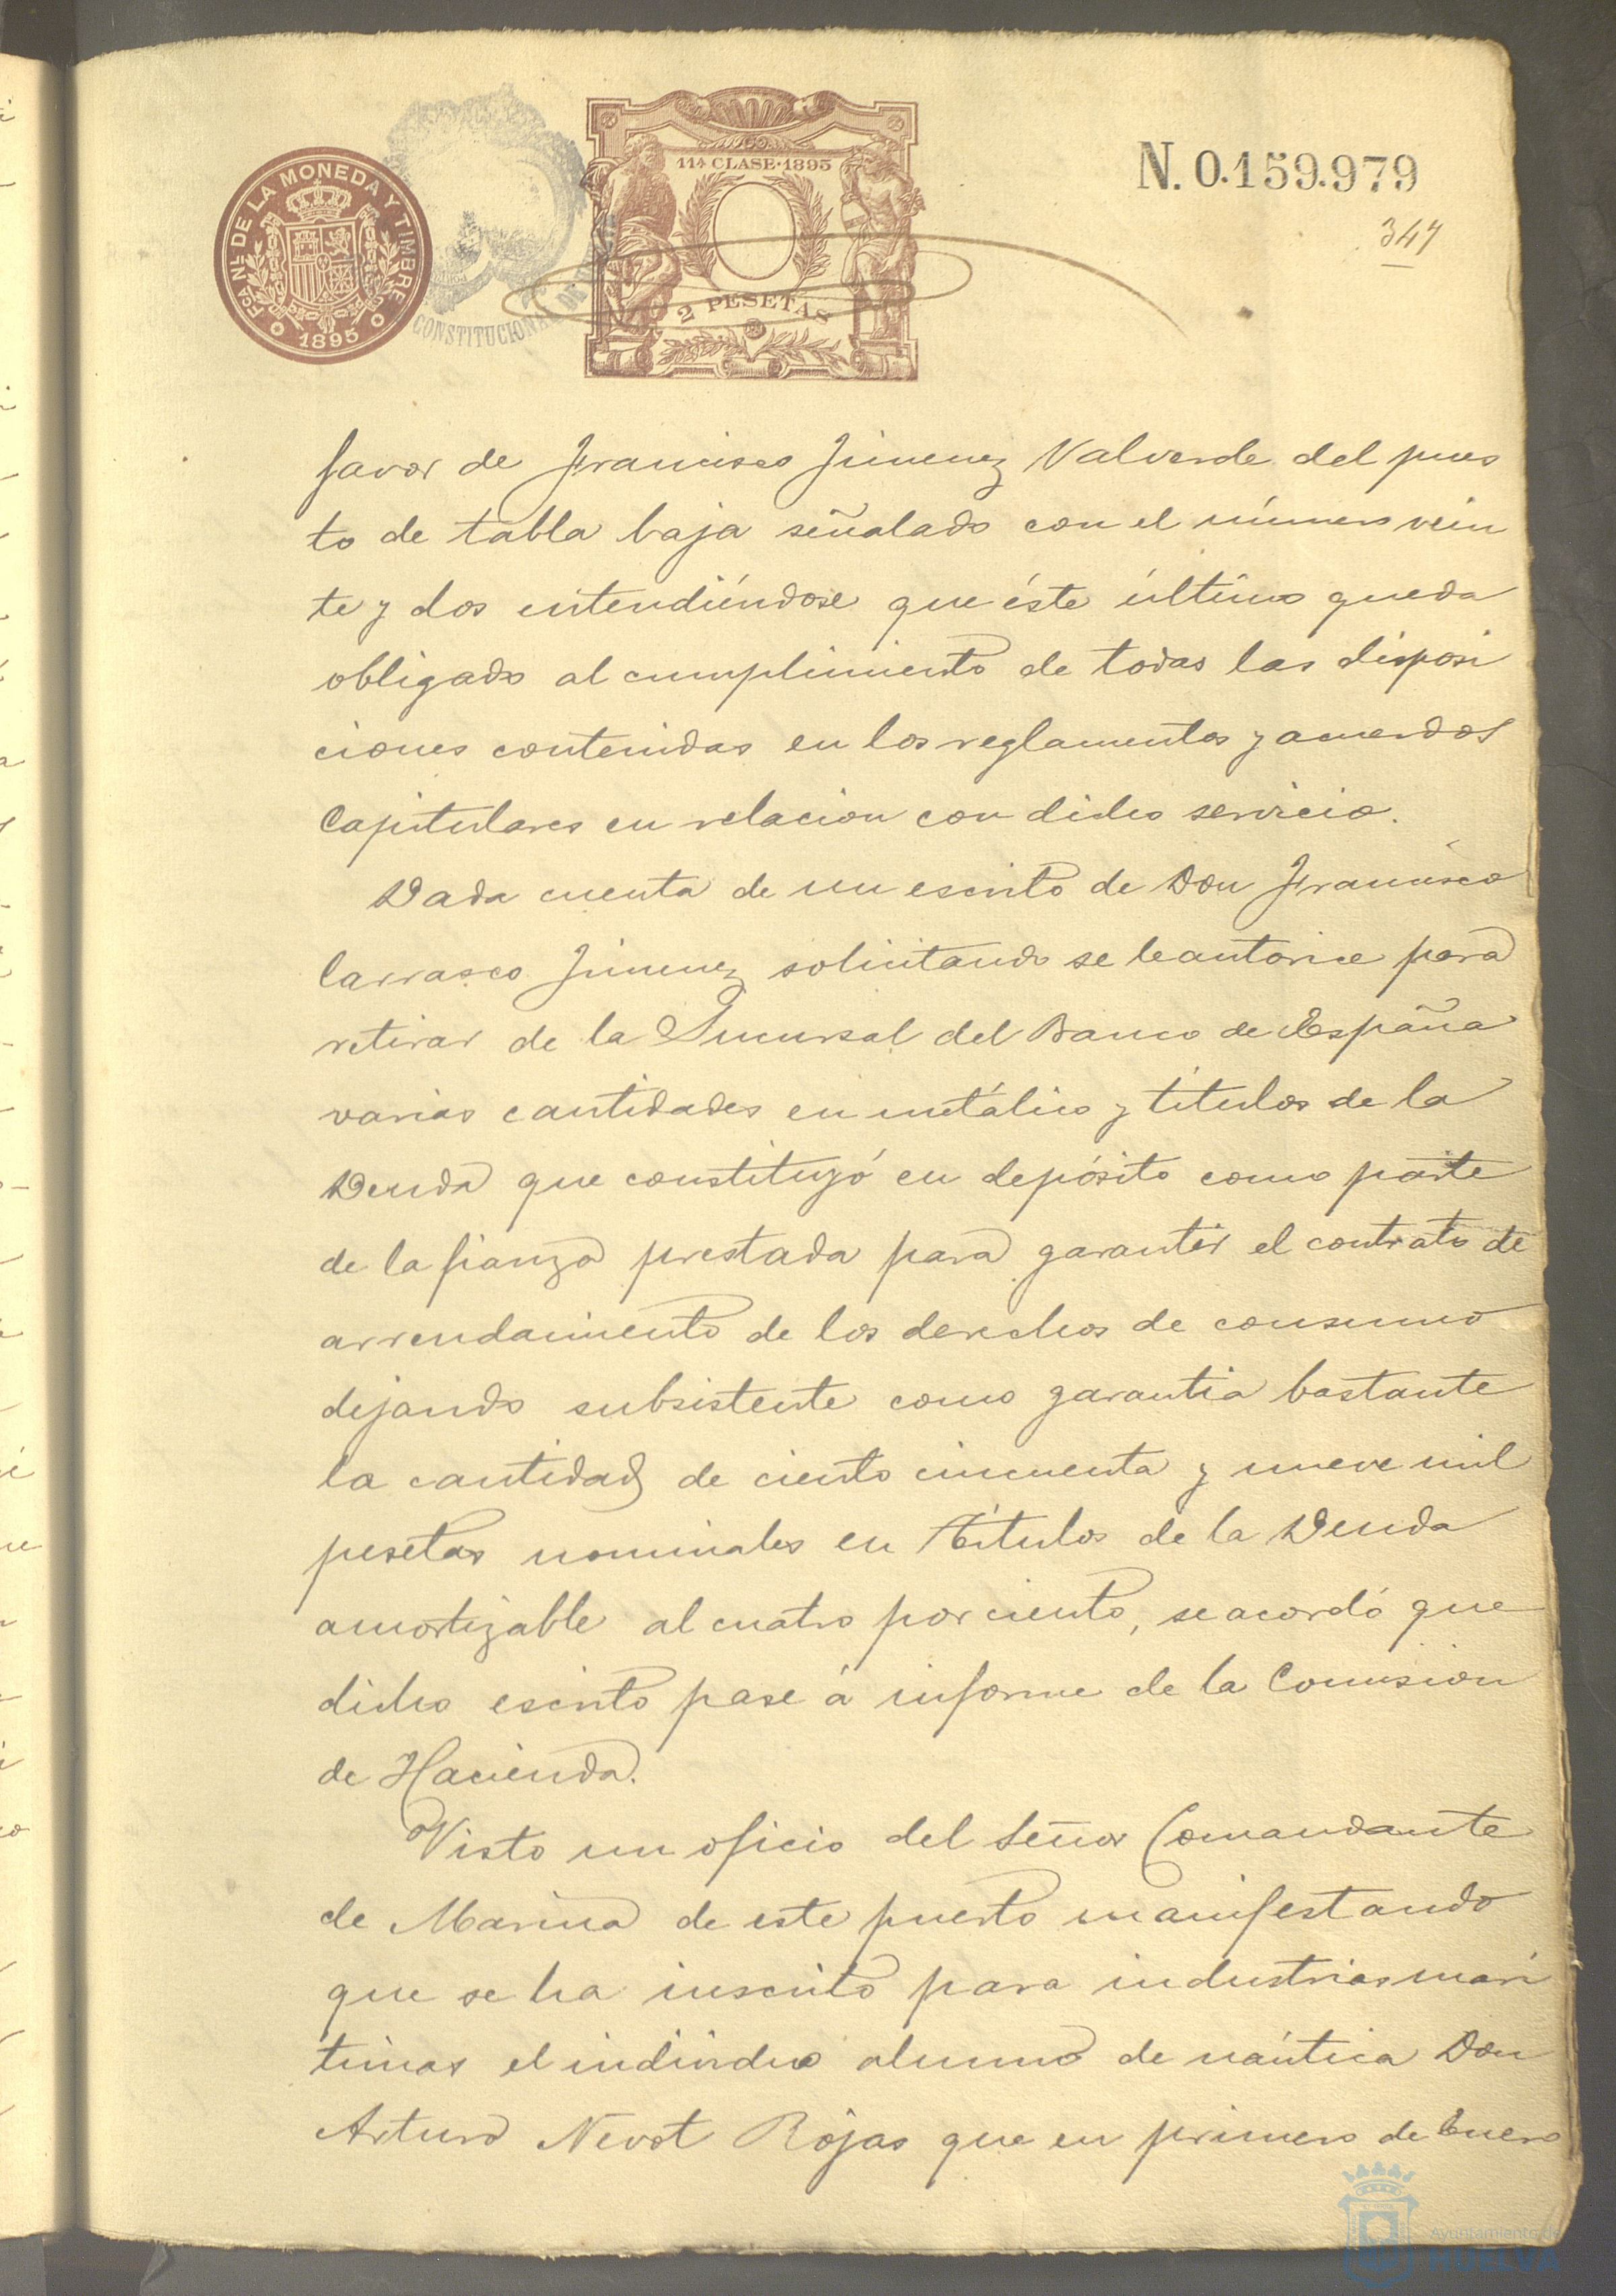 FCA NL DE LA MONEDA Y TIMBRE
1895
CONSTITUCIONAL DE
11ª CLASE·1895
2 PESETAS
N. 0.159.979
347
favor de Francisco Jimenez Valverde del pues
to de tabla baja señalado con el número vein
te y dos entendiéndose que éste último queda
obligado al cumplimiento de todas las disposi
ciones contenidas en los reglamentos y acuerdos
Capitulares en relacion con dicho servicio.
Dada cuenta de un escrito de Don Francisco
Carrasco Jimenez solicitando se le autorice para
retirar de la Sucursal del Banco de España
varias cantidades en metálico y títulos de la
Deuda que constituyó en depósito como parte
de la fianza prestada para garantir el contrato de
arrendamiento de los derechos de consumo
dejando subsistente como garantia bastante
la cantidad de ciento cincuenta y nueve mil
pesetas nominales en Títulos de la Deuda
amortizable al cuatro por ciento, se acordó que
dicho escrito pase á informe de la Comision
de Hacienda.
Visto un oficio del Señor Comandante
de Marina de este puerto manifestando
que se ha inscrito para industrias mari
timas el individuo alumno de náutica Don
Arturo Nevot Rojas que en primero de Enero
Ayuntamiento de
HUELVA